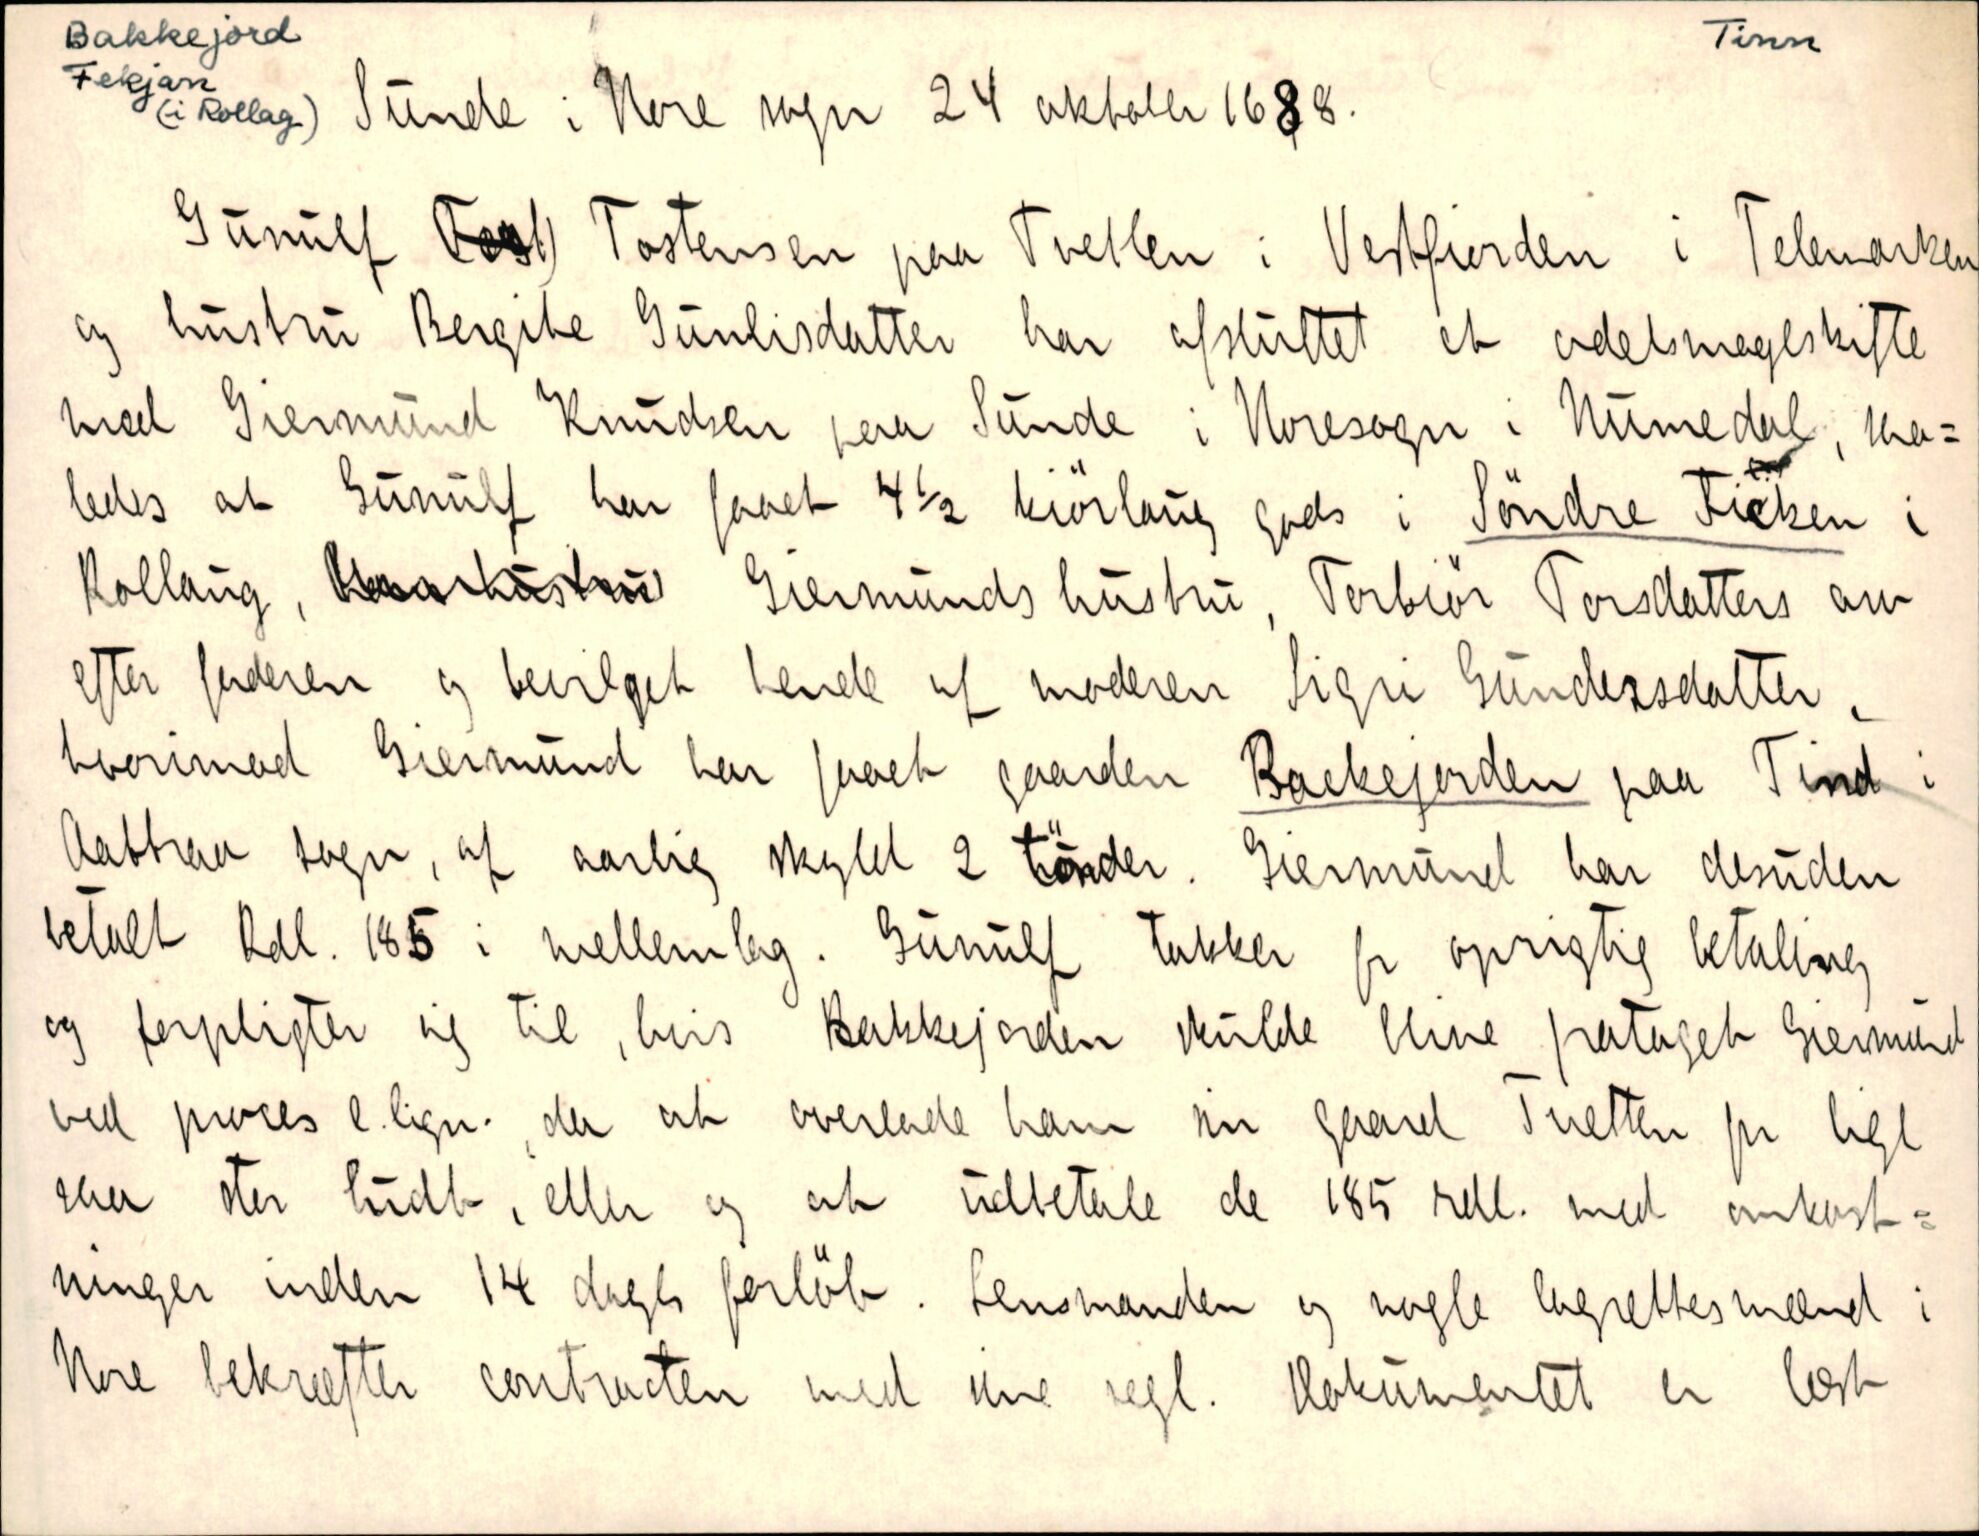 Bakkejord
Tinn
Fekjan
(i Rollag)
Sunde i Nore sogn 24 oktober 1688.
Gunulf Tostensen paa Tvetten i Vestfiorden i Telemarken
og hustru Bergite Gunlisdatter har afsluttet et odelsmageskifte
med Giermund Knudsen paa Sunde i Noresogn i Numedal, saa=
ledes at Gunulf har faaet 4½ kiörlaug gods i Söndre Ficken i
Rollaug, Giermunds hustru, Torbiör Torsdatters arv
efter faderen og bevilget hende af moderen Sigri Gundersdatter,
hvorimod Giermund har faaet gaarden Backejorden paa Tind i
Aattraa sogn, af aarlig skyld 2 tönder. Giermund har desuden
betalt Rdl. 185 i mellemlag. Gunulf takker for oprigtig betaling
og forpligter sig til, hvis Bakkejorden skulde blive frataget Giermund
ved proces e. lign., da at overlade ham sin gaard Tvetten for ligt
saa stor ludt, eller og at udbetale de 185 rdl. med omkost=
ninger inden 14 dages forlöb. Lensmanden og nogle lagrettesmænd i
Nore bekræfter contracten med sine segl. Dokumentet er læst